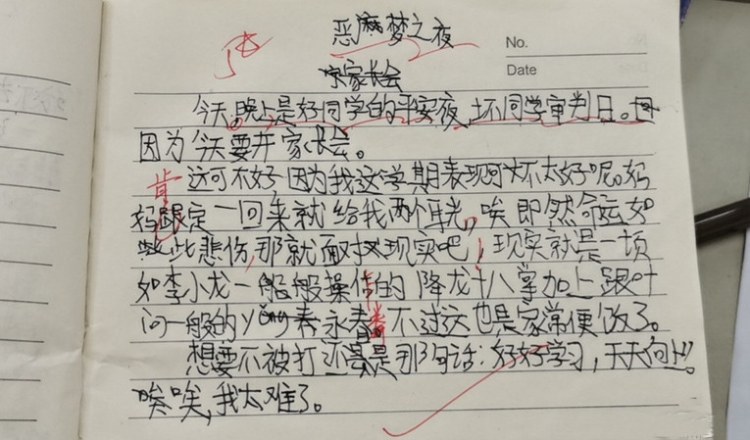 5☆
恶魔梦之夜
No.
Date
家长会
今天晚上是好同学的平安夜,坏同学审判日。
因为今天要开家长会。
这可不好因为我这学期表现可坏太好呢。妈
肯
妈跟定一回来就给我两个耳光,唉即然命运如
此悲伤,那就面对现实吧,现实就是一顿
如李小龙一般般操作的降龙十八掌加上跟叶
问一般的咏春永春。不过这也是家常便饭了。
想要不被打还是那句话:好好学习,天天向上!
唉唉,我太难了。